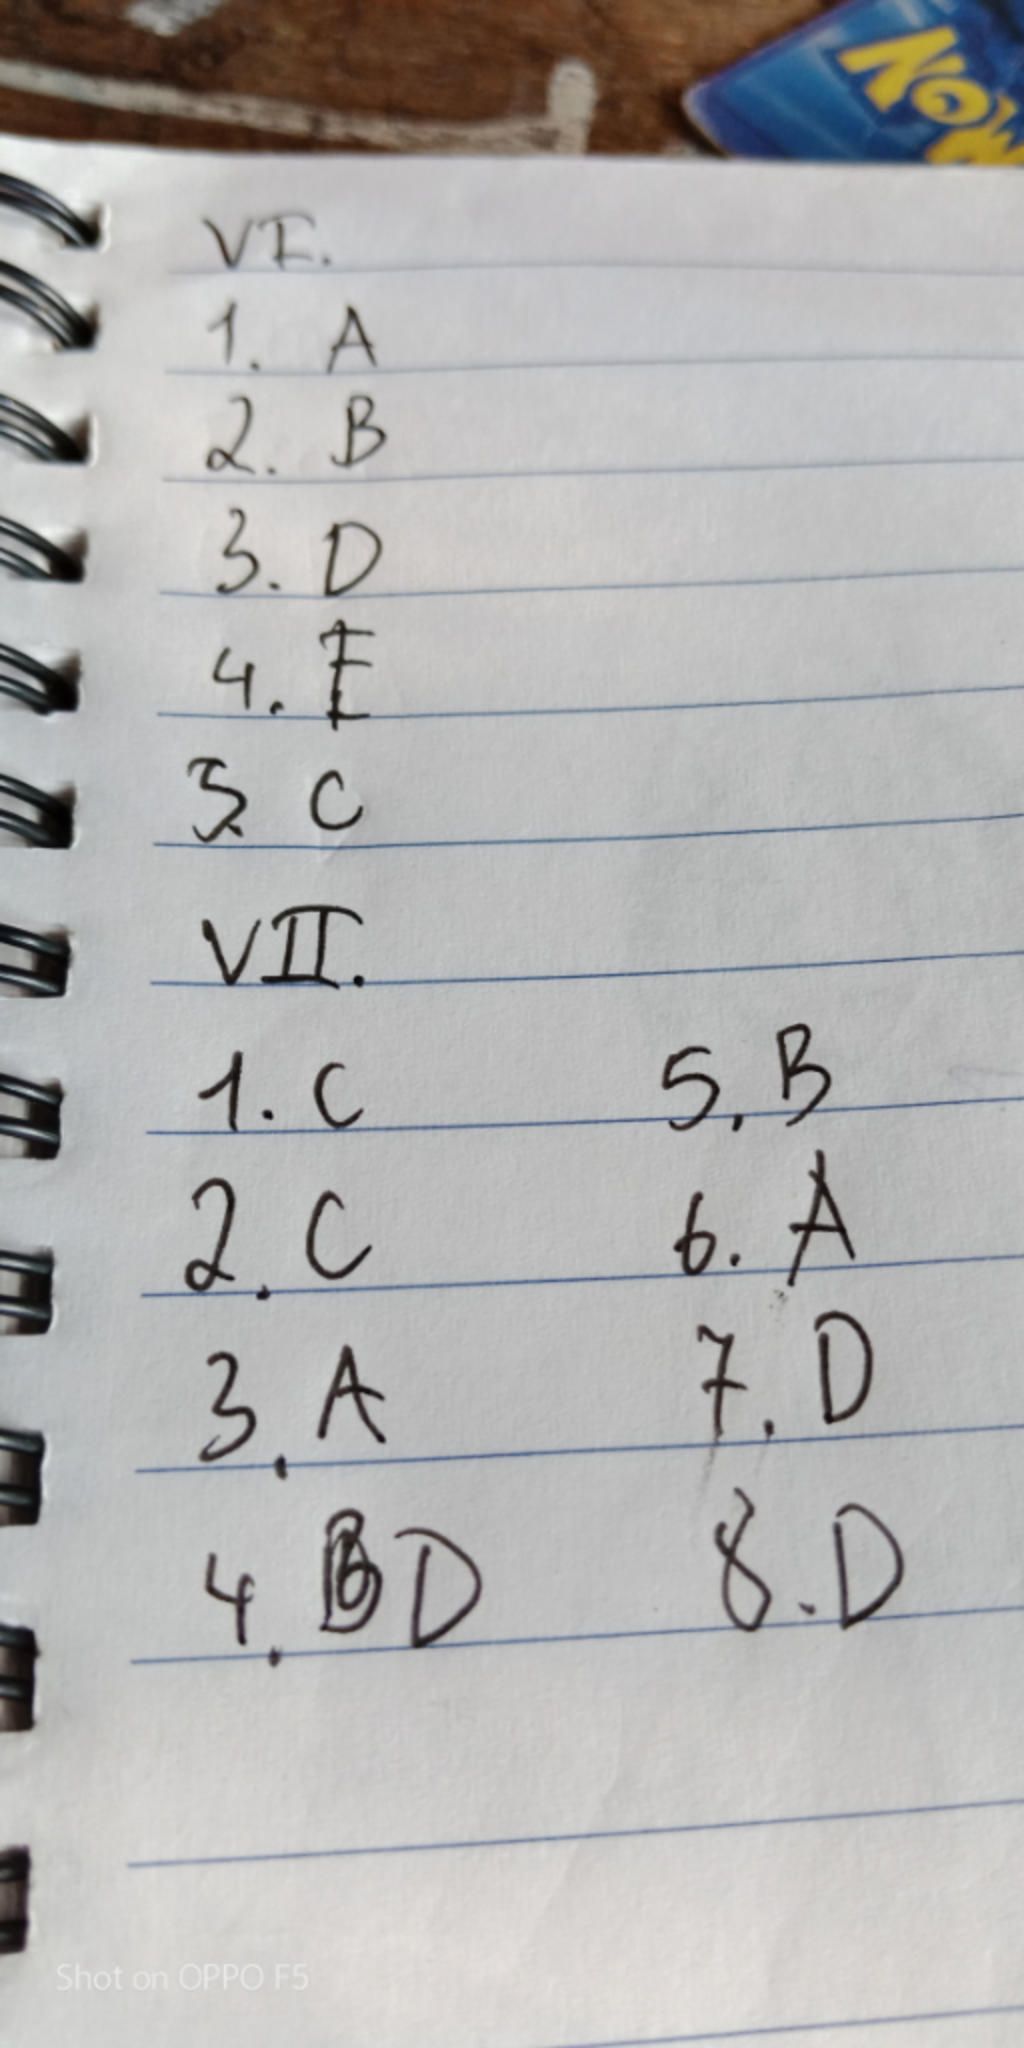 NOW
VI.
1. A
2. B
3. D
4. E
5. C
VII.
1. C
2. C
3. A
4. D
5. B
6. A
7. D
8. D
Shot on OPPO F5